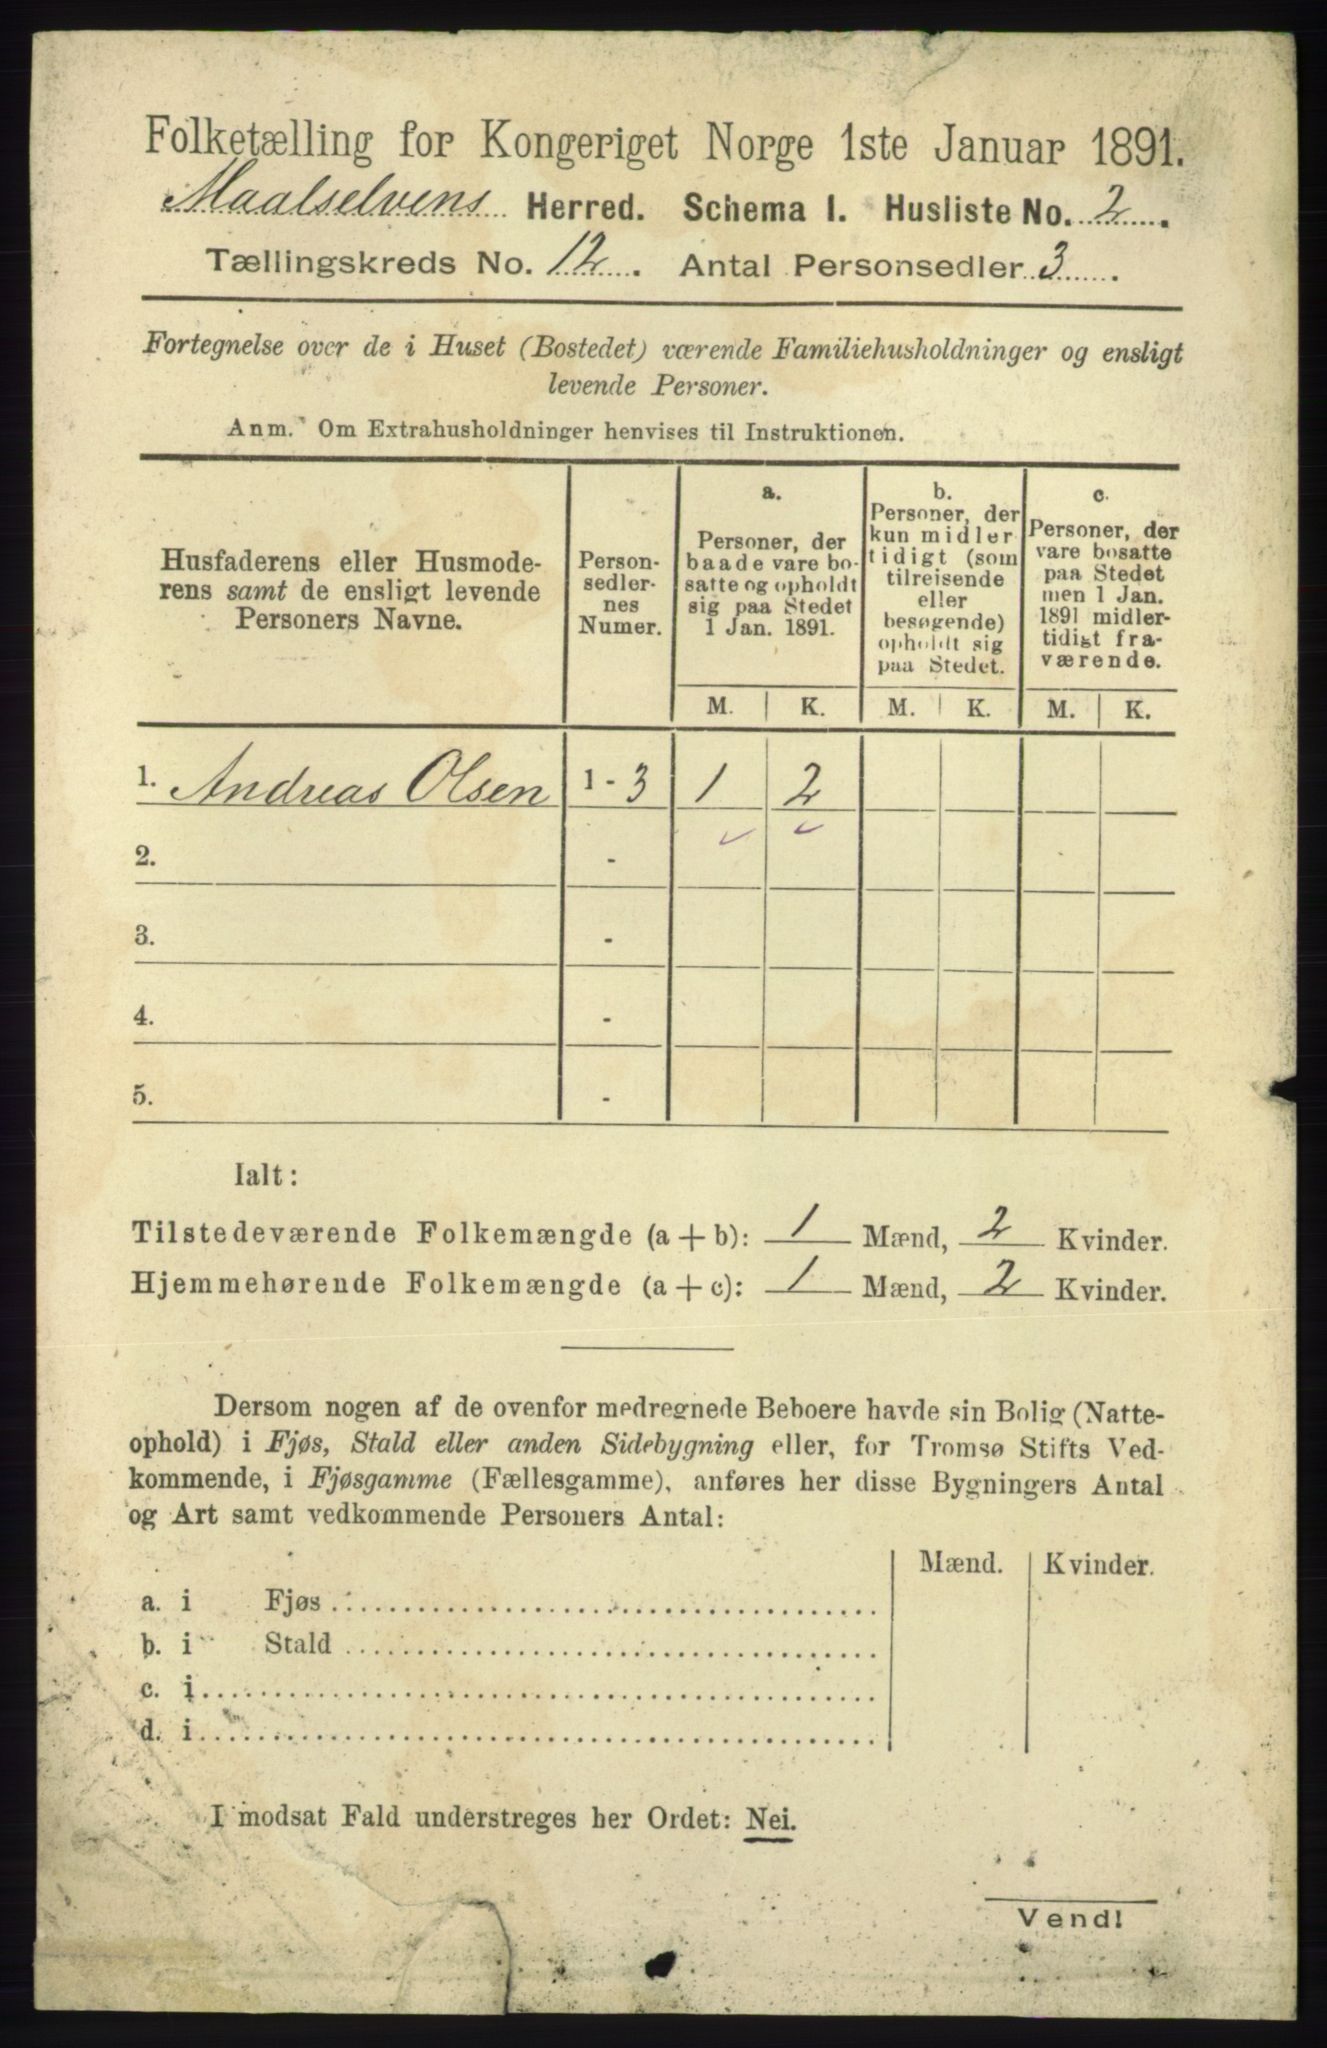 Folketælling for Kongeriget Norge 1ste Januar 1891.
Maalselvens Herred. Schema I. Husliste No. 2.
Tællingskreds No. 12. Antal Personsedler 3.
Fortegnelse over de i Huset (Bostedet) værende Familiehusholdninger og ensligt
levende Personer.
Anm. Om Extrahusholdninger henvises til Instruktionen.
Husfaderens eller Husmode-
rens samt de ensligt levende
Personers Navne.
Person-
sedler-
nes
Numer.
a.
Personer, der
baade vare bo-
satte og opholdt
sig paa Stedet
1 Jan. 1891.
b.
Personer, der
kun midler
tidigt (som
tilreisende
eller
besøgende)
opholdt sig
paa Stedet.
c.
Personer, der
vare bosatte
paa Stedet
men 1 Jan.
1891 midler-
tidigt fra-
værende.
M. K. M. K. M. K.
1. Andreas Olsen 1 - 3 1 2
2. -
3. -
4. -
5. -
Ialt:
Tilstedeværende Folkemængde (a + b): 1 Mænd, 2 Kvinder.
Hjemmehørende Folkemængde (a + c): 1 Mænd, 2 Kvinder.
Dersom nogen af de ovenfor medregnede Beboere havde sin Bolig (Natte-
ophold) i Fjøs, Stald eller anden Sidebygning eller, for Tromsø Stifts Ved-
kommende, i Fjøsgamme (Fællesgamme), anføres her disse Bygningers Antal
og Art samt vedkommende Personers Antal:
Mænd. Kvinder.
a. i Fjøs
b. i Stald
c. i
d. i
I modsat Fald understreges her Ordet: Nei.
Vend!